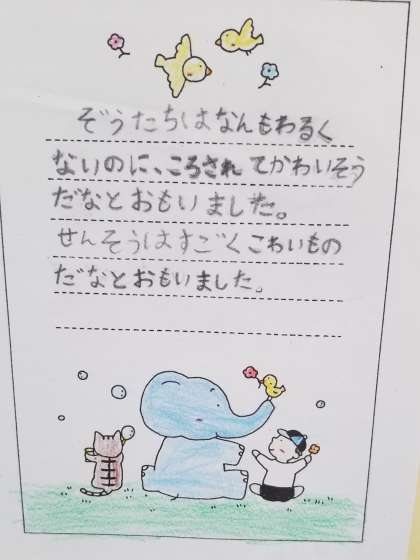 ぞうたちはなんもわるく
ないのに、ころされてかわいそう
だなとおもいました。
せんそうはすごくこわいもの
だなとおもいました。